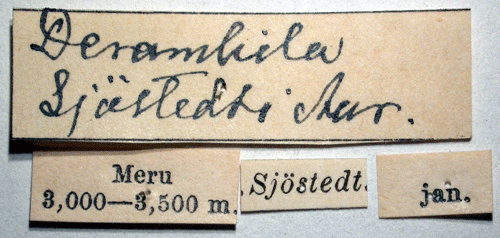 Derambila
Sjöstedti Aur.
Meru
3,000—3,500 m.
Sjöstedt.
jan.